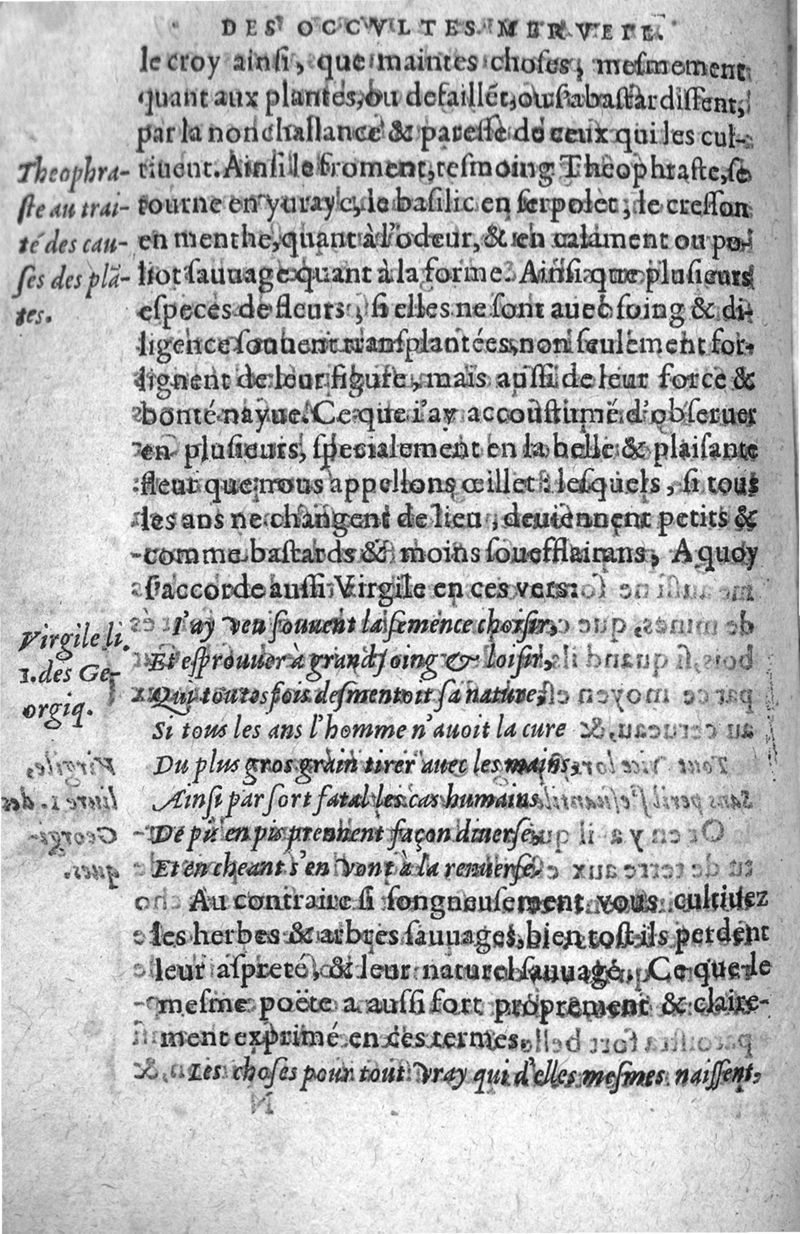 DES OCCVLTES MERVEIL.
Ie croy ainsi, que maintes choses, mesmement
quant aux plantes, ou defaillẽt, ou s'abastardissent,
par la nonchallance & paresse de ceux qui les cul-
tiuent. Ainsi le froment, tesmoing Theophraste, se
tourne en yuraye, le basilic en serpolet, le cresson
en menthe, quant à l'odeur, & en calament ou po-
liot sauuage quant à la forme. Ainsi que plusieurs
especes de fleurs, si elles ne sont auec soing & di-
ligence souuent transplantées, non seulement for-
lignent de leur figure, mais aussi de leur force &
bonté nayue. Ce que i'ay accoustumé d'obseruer
en plusieurs, specialement en la belle & plaisante
fleur que nous appellons œillet: lesquels, si tous
les ans ne changent de lieu, deuiennent petits &
comme bastards & moins souefflairans, A quoy
s'accorde aussi Virgile en ces vers:
I'ay veu souuent la semence choisir,
Et esprouuer à grand soing & loisir,
Qui toutesfois desmentoit sa nature,
Si tous les ans l'homme n'auoit la cure
Du plus gros grain tirer auec les mains,
Ainsi par sort fatal les cas humains
De pis en pis prennent façon diuerse,
Et en cheant s'en vont à la renuerse.
Au contraire si songneusement vous cultiuez
les herbes & arbres sauuages, bien tost ils perdent
leur aspreté, & leur naturel sauuage. Ce que le
mesme poëte a aussi fort proprement & claire-
ment exprimé en ces termes.
Les choses pour tout vray qui d'elles mesmes naissent,
Theophra-
ste au trai-
té des cau-
ses des plã-
tes.
Virgile li.
1. des Ge-
orgiq.